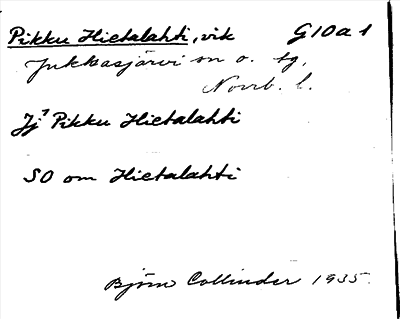 Pikku Hietalahti, vik G10a1
Jukkasjärvi sn o. tg,
Norrb. l.
Jj² Pikku Hietalahti
SO om Hietalahti
Björn Collinder 1935.